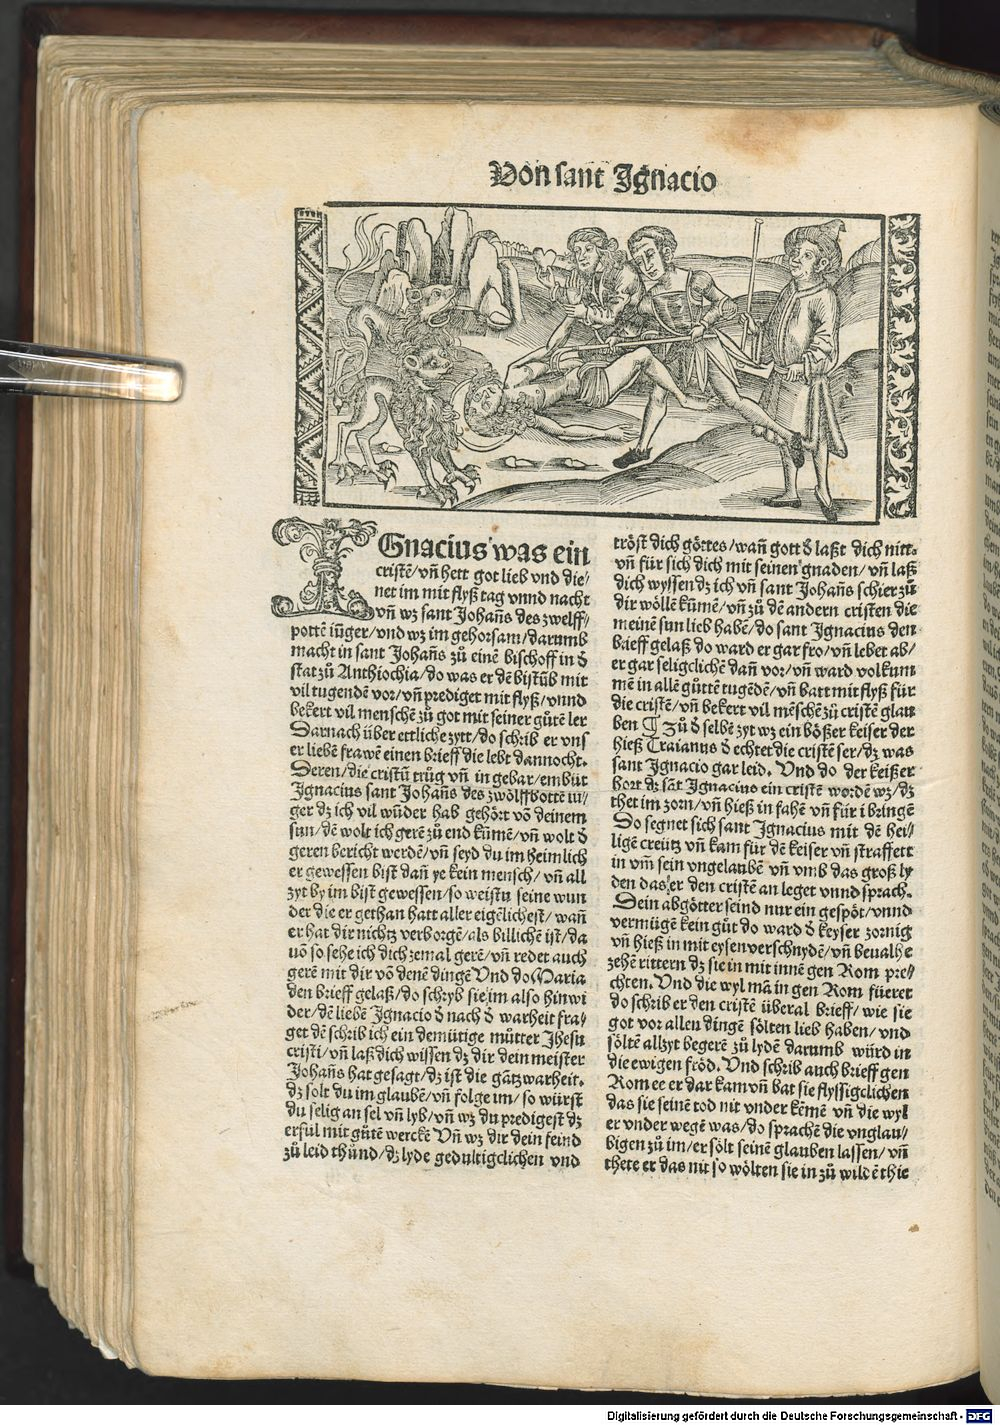 Von sant Ignacio
IGnacius was ein
cristē/vn̄ hett got lieb vnd die/
net im mit flyß tag vnnd nacht
vn̄ wz sant Johan̄s des zwelff/
pottē iūger/vnd wz im gehorsam/darumb
macht in sant Johan̄s zů einē bischoff in d̄
stat zů Anthiochia/do was er dē bistūb mit
vil tugendē vor/vn̄ prediget mit flyß/vnnd
bekert vil menschē zů got mit seiner gůtē ler
Darnach über ettliche zytt/do schrib er vns
er liebē frawē einen brieff die lebt dannocht.
Deren/die cristū trůg vn̄ in gebar/embüt
Ignacius sant Johan̄s des zwölffbottē iü/
ger dz ich vil wūder hab gehört vō deinem
sun/dē wolt ich gerē zů end kūmē/vn̄ wolt d̄
geren bericht werdē/vn̄ seyd du im heimlich
er gewessen bist dan̄ ye kein mensch/vn̄ all
zyt by im bist gewessen/so weistu seine wun
der die er gethan hatt aller eigēlichest/wan̄
er hat dir nichtz verborgē/als billichē ist/da
uō so sehe ich dich zemal gerē/vn̄ redet auch
gerē mit dir vō denē dingē Vnd do Maria
den brieff gelaß/do schryb sie im also hinwi
der/dē liebē Ignacio d̄ nach d̄ warheit fra/
get dē schrib ich ein demütige můtter Jhesu
cristi/vn̄ laß dich wissen dz dir dein meister
Johan̄s hat gesagt/dz ist die gātz warheit.
dz solt du im glaubē/vn̄ folge im/so würst
du selig an sel vn̄ lyb/vn̄ wz du predigest dz
erful mit gůtē werckē Vn̄ wz dir dein feind
zů leid thůnd/dz lyde gedultigclichen vnd
tröst dich gottes/wan̄ gott d̄ laßt dich nitt.
vn̄ für sich dich mit seinen gnaden/vn̄ laß
dich wyssen dz ich vn̄ sant Johan̄s schier zů
dir wöllē kūmē/vn̄ zů dē andern cristen die
meinē sun lieb habē/do sant Ignacius den
brieff gelaß do ward er gar fro/vn̄ lebet ab/
er gar seligclichē dan̄ vor/vn̄ ward volkum
mē in allē gůttē tugēdē/vn̄ batt mit flyß für
die cristē/vn̄ bekert vil mēschē zů cristē glau
ben ¶ Zů d̄ selbē zyt wz ein bößer keiser der
hieß Traianus d̄ echtet die cristē ser/dz was
sant Ignacio gar leid. Vnd do der keißer
hort dz sāt Ignacius ein cristē wordē wz/dz
thet im zorn/vn̄ hieß in fahē vn̄ für ī bringē
Do segnet sich sant Ignacius mit dē hei/
ligē creütz vn̄ kam für dē keiser vn̄ straffett
in vm̄ sein vngelaubē vn̄ vmb das groß ly
den das er den cristē an leget vnnd sprach.
Dein abgötter seind nur ein gespöt/vnnd
vermügē kein gůt do ward d̄ keyser zornig
vn̄ hieß in mit eysen verschnydē/vn̄ beualhe
zehē rittern dz sie in mit innē gen Rom pre/
chten. Vnd die wyl mā in gen Rom füeret
do schrib er den cristē überal brieff/wie sie
got vor allen dingē sölten lieb haben/vnd
söltē allzyt begerē zů lydē darumb würd in
die ewigen fröd. Vnd schrib auch brieff gen
Rom ee er dar kam vn̄ bat sie flyssigclichen
das sie seinē tod nit vnder kēmē vn̄ die wyl
er vnder wegē was/do sprachē die vnglau/
bigen zů im/er sölt seinē glauben lassen/vn̄
thete er das nit so wölten sie in zů wildē thie
Digitalisierung gefördert durch die Deutsche Forschungsgemeinschaft - DFG